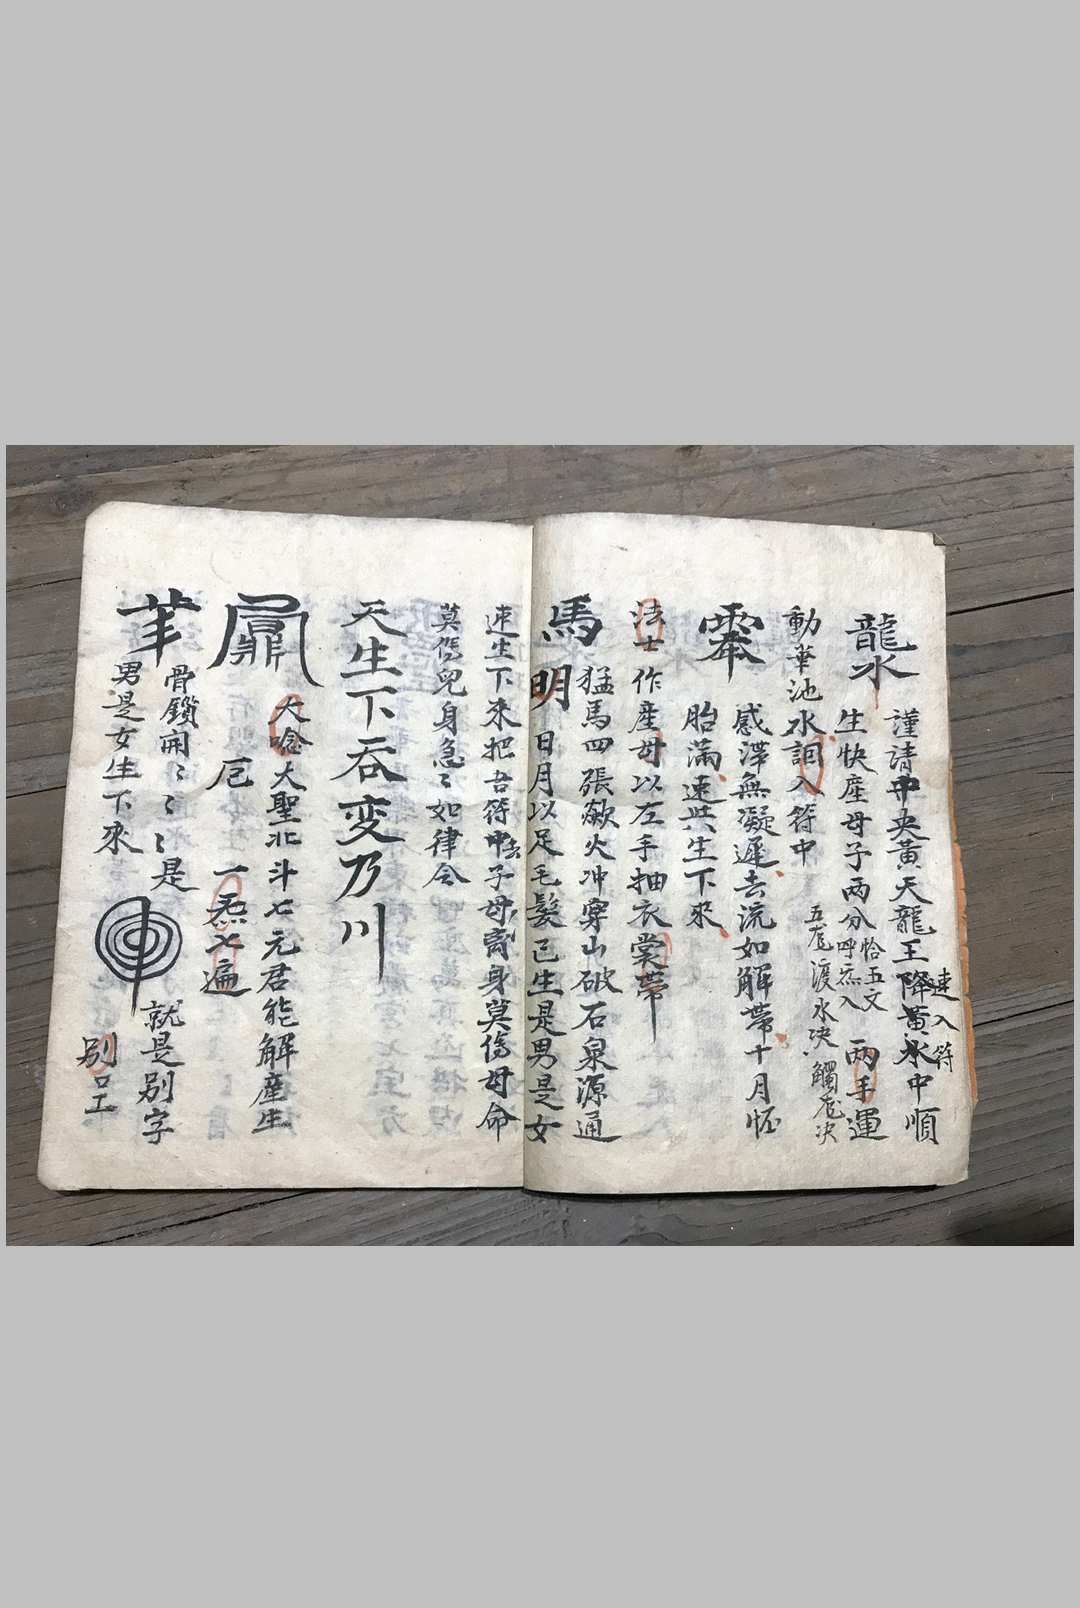 龍水
謹請中央黃天龍王降黃水中順
速入符
生快産母子兩分
恰五文
呼炁入
兩手運
動華池水洄入符中
五雹渡水决觸雹决
感滯無凝遲去流如解帶十月恠
胎滿速些生下來
法士作産母以左手抽衣裳帶
馬
猛馬四張欻火冲穿山破石泉源通
明
日月以足毛髮已生是男是女
速生下來把吾符中去子母离身莫傷母命
莫傷兒身急〻如律令
天生下吞变乃川
大唸大聖北斗七元君能解産生
厄
一炁七遍
骨鎖開〻〻〻是
男是女生下來
就是别字
别号